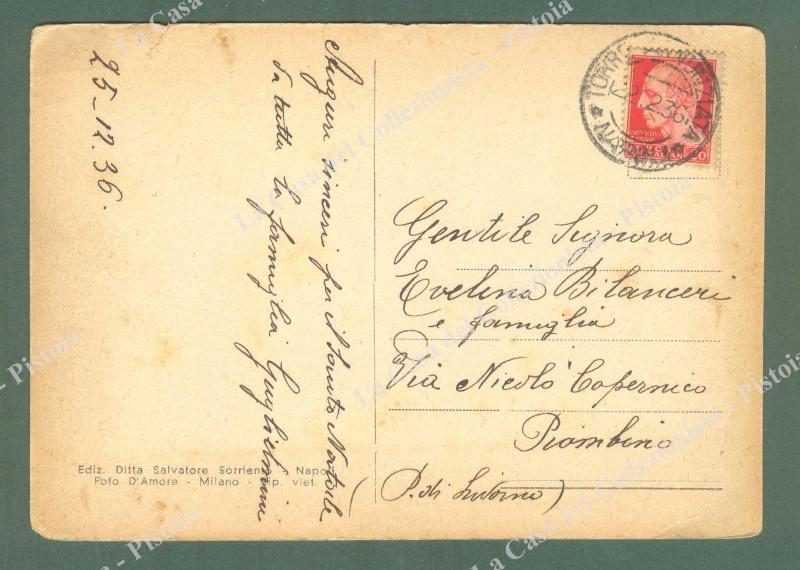 25-12.36.
Auguri sinceri per il Santo Natale
da tutta la famiglia Guglielmini
Gentile Signora
Evelina Bilanceri
e famiglia
Via Nicolò Copernico
Piombino
(P. di Livorno)
TORRE ANNUNZIATA
12.36
NAPOLI
ITALIANE
Ediz. Ditta Salvatore Sorrentino Napoli
Foto D'Amore - Milano - Rip. viet.
La Casa del Collezionista - Pistoia